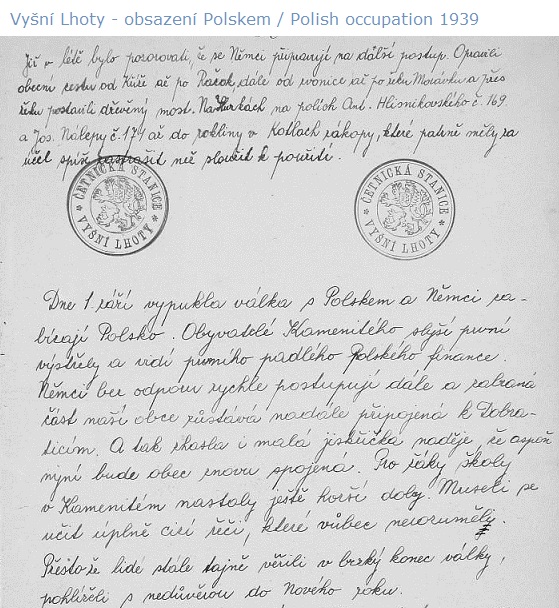 Vyšní Lhoty - obsazení Polskem / Polish occupation 1939
Již v létě bylo pozorovati, že se Němci připravují na další postup. Opravili
obecní cestu od Kůře až po Pačok, dále od zvonice až po řeku Morávku a přes
řeku postavili dřevěný most. Na Hurkách na polích Ant. Hlisnikovského č. 169.
a Jos. Nálepy č. 174 až do rokliny v Kotlach zákopy, které patrně měly za
účel spíše zastrašit než sloužit k použití.
ČETNICKÁ STANICE
* VYŠNÍ LHOTY *
ČETNICKÁ STANICE
* VYŠNÍ LHOTY *
Dne 1. září vypukla válka s Polskem a Němci za-
bírají Polsko. Obyvatelé Kamenitého slyší první
výstřely a vidí prvního padlého Polského finance.
Němci bez odporu rychle postupují dále a zabraná
část naší obce zůstává nadále připojená k Dobra-
ticím. A tak zhasla i malá jiskřička naděje, že aspoň
nyní bude obec znovu spojená. Pro žáky školy
v Kamenitém nastaly ještě horší doby. Museli se
učit úplně cizí řeči, které vůbec nerozuměly.
Přesto že lidé stále tajně věřili v brzký konec války,
pohlíželi s nedůvěrou do Nového roku.